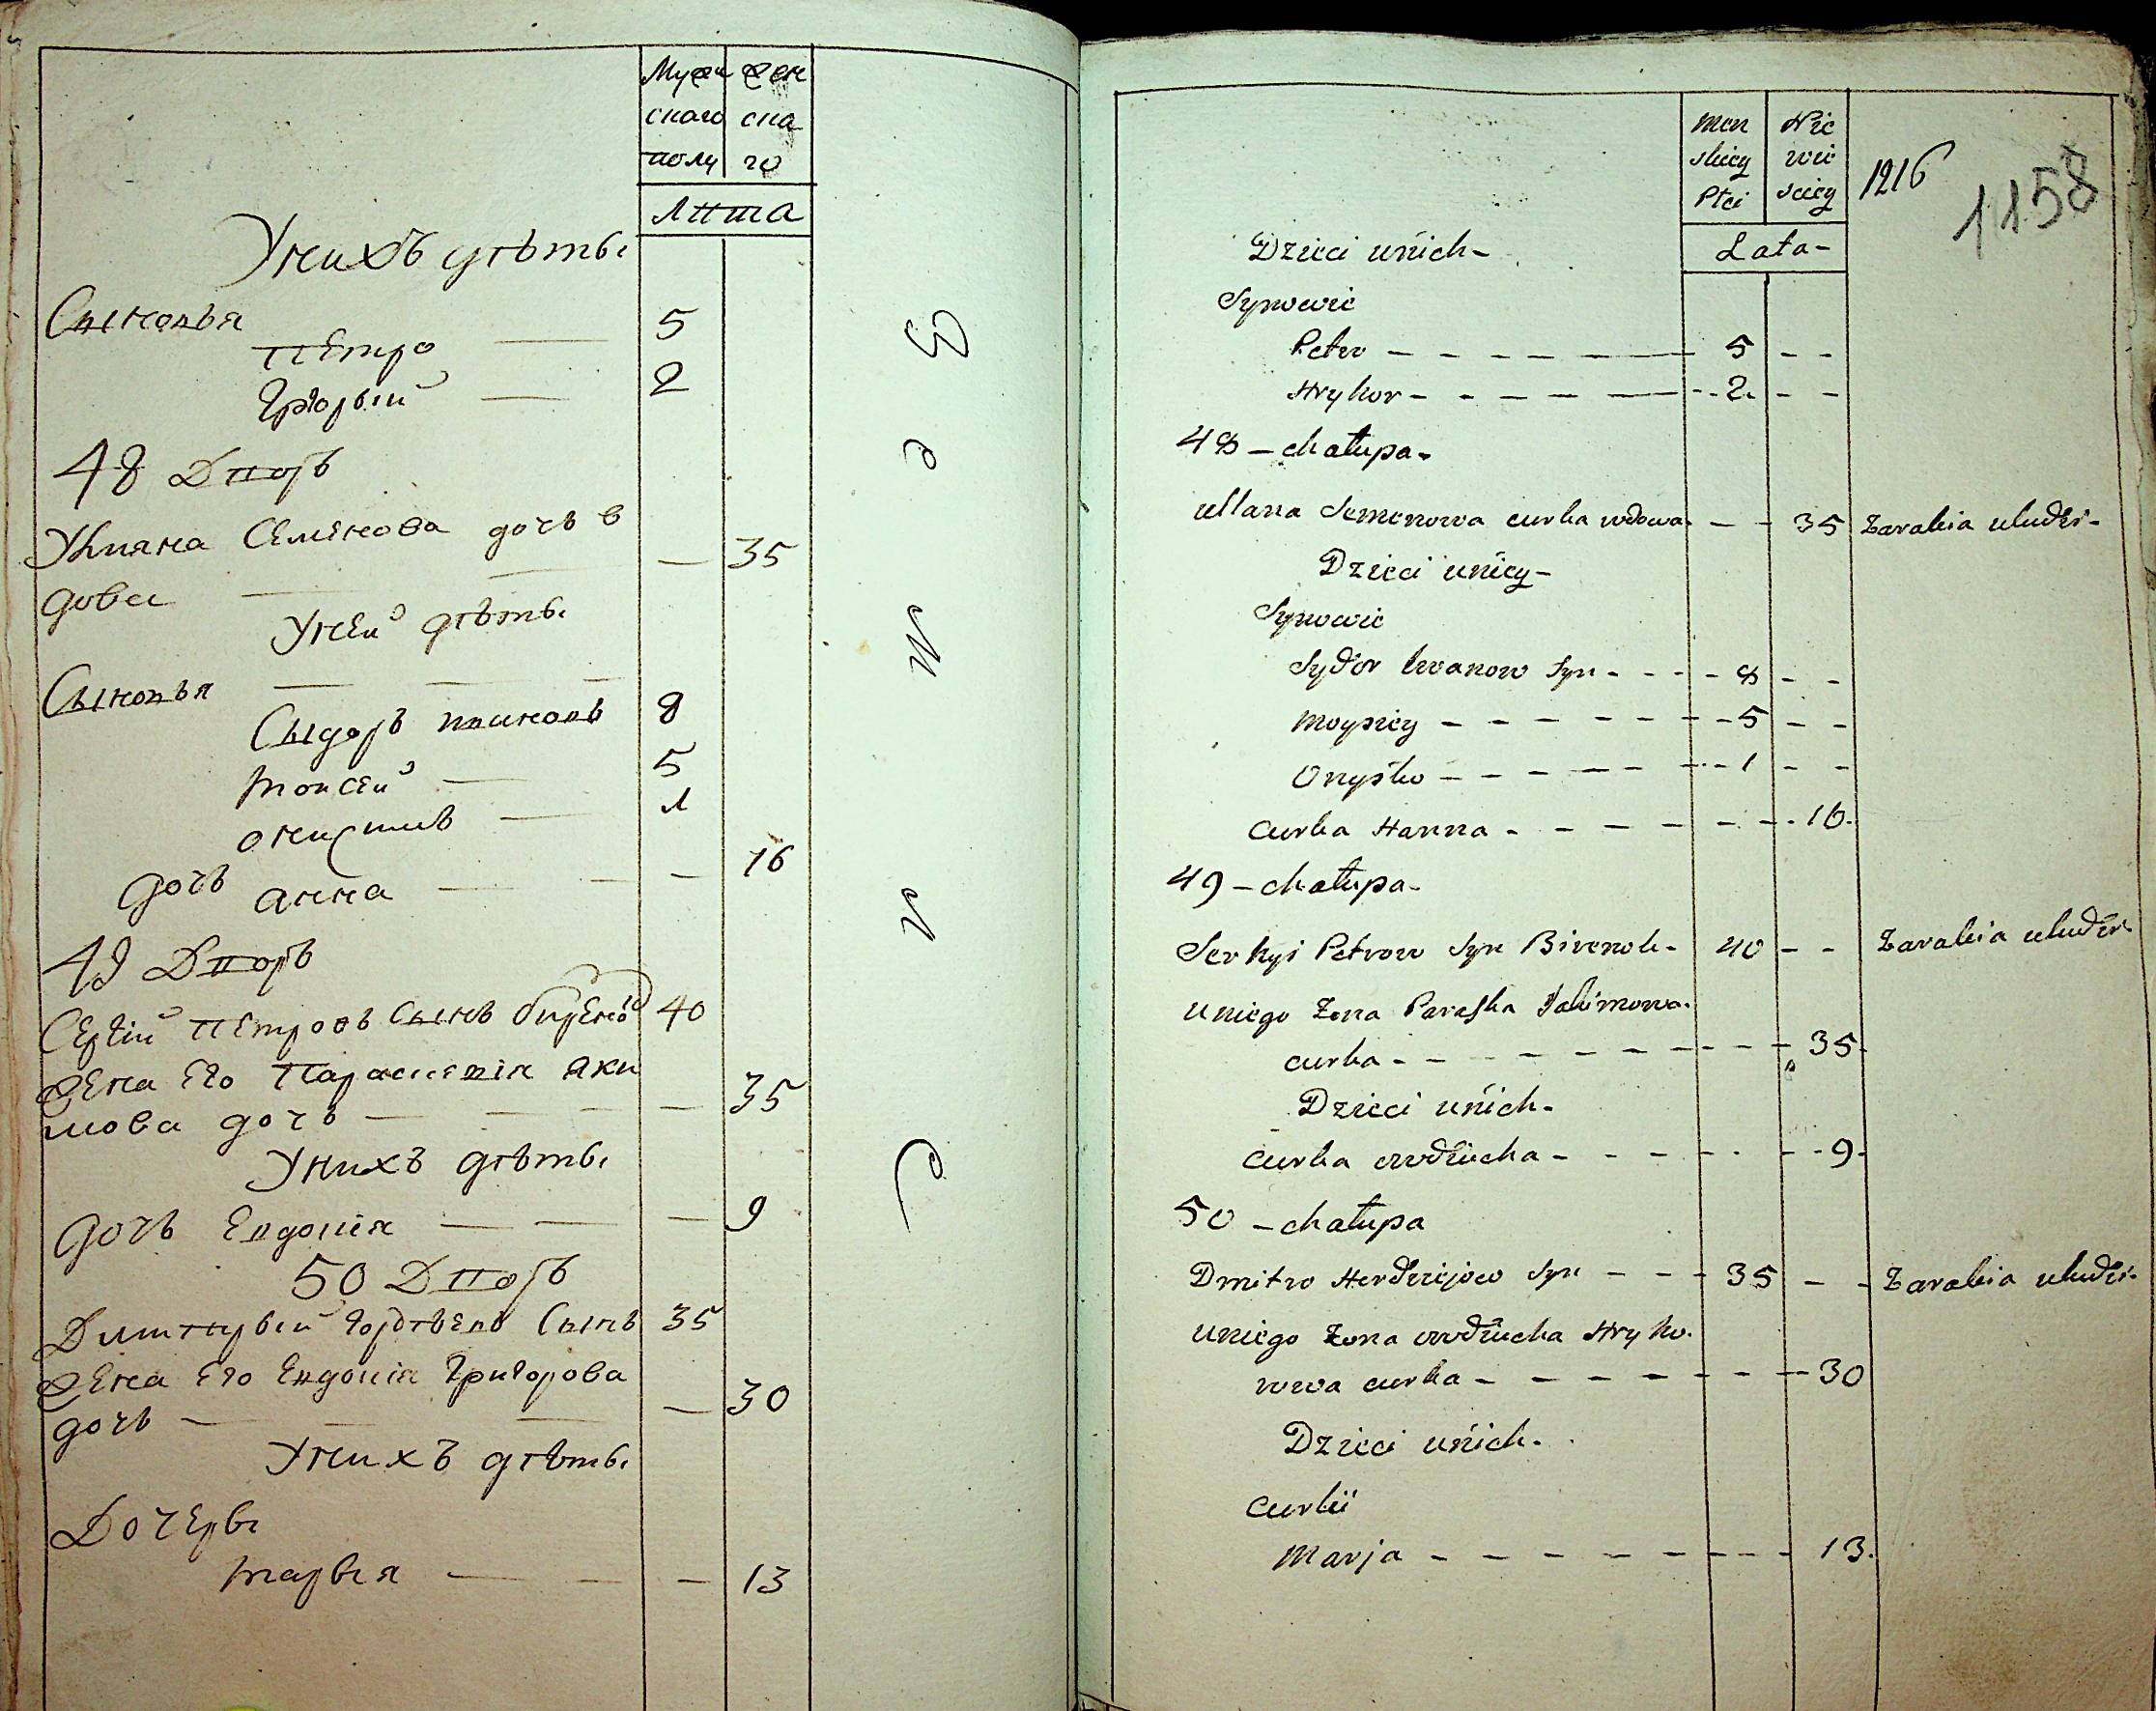 Мужен жен
скаго ска
полу го
Лѣта
У нихъ дѣтѣ
Сыновья
Петро — 5
Григорый — 2
48 Дворъ
Ульяна Семенова дочь в
дова — — 35
У ней дѣтѣ
Сыновья — — —
Сыдоръ Ивановъ 8
Моисей — 5
Онисимъ — 1
дочь анна — — — 16
49 Дворъ
Сергій Петровъ Сынъ Биренко 40
жена Его Параскевія Яки
мова дочь — — — — 35
У нихъ дѣтѣ
дочь Евдокія — — — 9
50 Дворъ
Дмитрый Гордѣевъ Сынъ 35
жена Его Евдокія Григорова
дочь — — — — 30
У нихъ дѣтѣ
Дочеры
Марья — — — 13
Men Nie
skiey wie
Płci sciey
Lata -
1216
1158
Dzieci unich -
Synowie
Petro - - - - - 5 - -
Hryhor - - - - - 2. - -
48 - chałupa -
Ullana Semenowa curka wdowa. - - 35 Zarabia uludzi -
Dzieci uniey -
Synowie
Sydor Iwanow Syn - - - - 8 - -
Moysiey - - - - - - - 5 - -
Onyśko - - - - - - - 1 - -
Curka Hanna - - - - - - - 16.
49 - chałupa -
Serhyi Petrow Syn Birenok - 40 - - Zarabia uludzi
Uniego Zona Paraska Jakimowa.
curka - - - - - - - - - 35.
Dzieci unich -
Curka owdiucha - - - - - - - 9.
50 - chałupa
Dmitro Hordziejow Syn - - - 35 - - Zarabia uludzi -
Uniego Zona owdiucha Hryho.
rowa curka - - - - - - - 30
Dzieci unich - .
Curki
Marja - - - - - - - - 13.